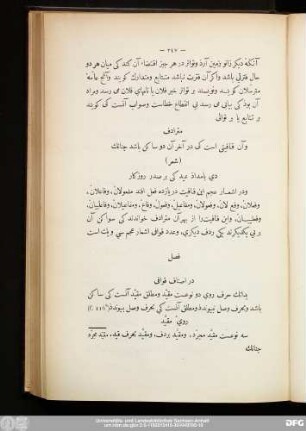 — ٢٤٧ —
آنکه دیگر زانو زمین آرد وتواتر در هر چیز اقتضاء آن کند کی میان هر دو
حال فترتی باشد واکر آن فترت نباشد متتابع ومتدارك کویند
مترسلان کویند
آن بود کی بیابی می رسد بی انقطاع خطاست وصواب آنست کی کویند
بر تتابع یا بر توالی
مترادف
وآن قافیتی است کی در آخر آن دو ساکن باشد چنانك
(شعر)
دی بامداد عید کی بر صدر روزکار
ودر اشعار عجم این قافیت در یازده فعل افتد مفعولان، وفاعلان،
وفعلان، وفعولان، ومفاعیل، وفعول، وفاع، ومفاعیلان، وفاعلیان،
وفعلییان، واین قافیت را از بهر آن مترادف خواندند کی سواکن آن
بر پی یکدیکرند یکی ردف دیکری، وعدد قوافی اشعار عجم سی ویك است
فصل
در اصناف قوافی
بدانك حرف روی دو نوعست مقیّد ومطلق مقیّد آنست کی ساکن
باشد وبحرف وصل نپیوندد ومطلق آنست کی بحرف وصل بپیوندد
روی مقیّد
سه نوعست مقیّد مجرّد، ومقیّد بردف، ومقیّد بحرف قید، مقیّد مجرّد
چنانك